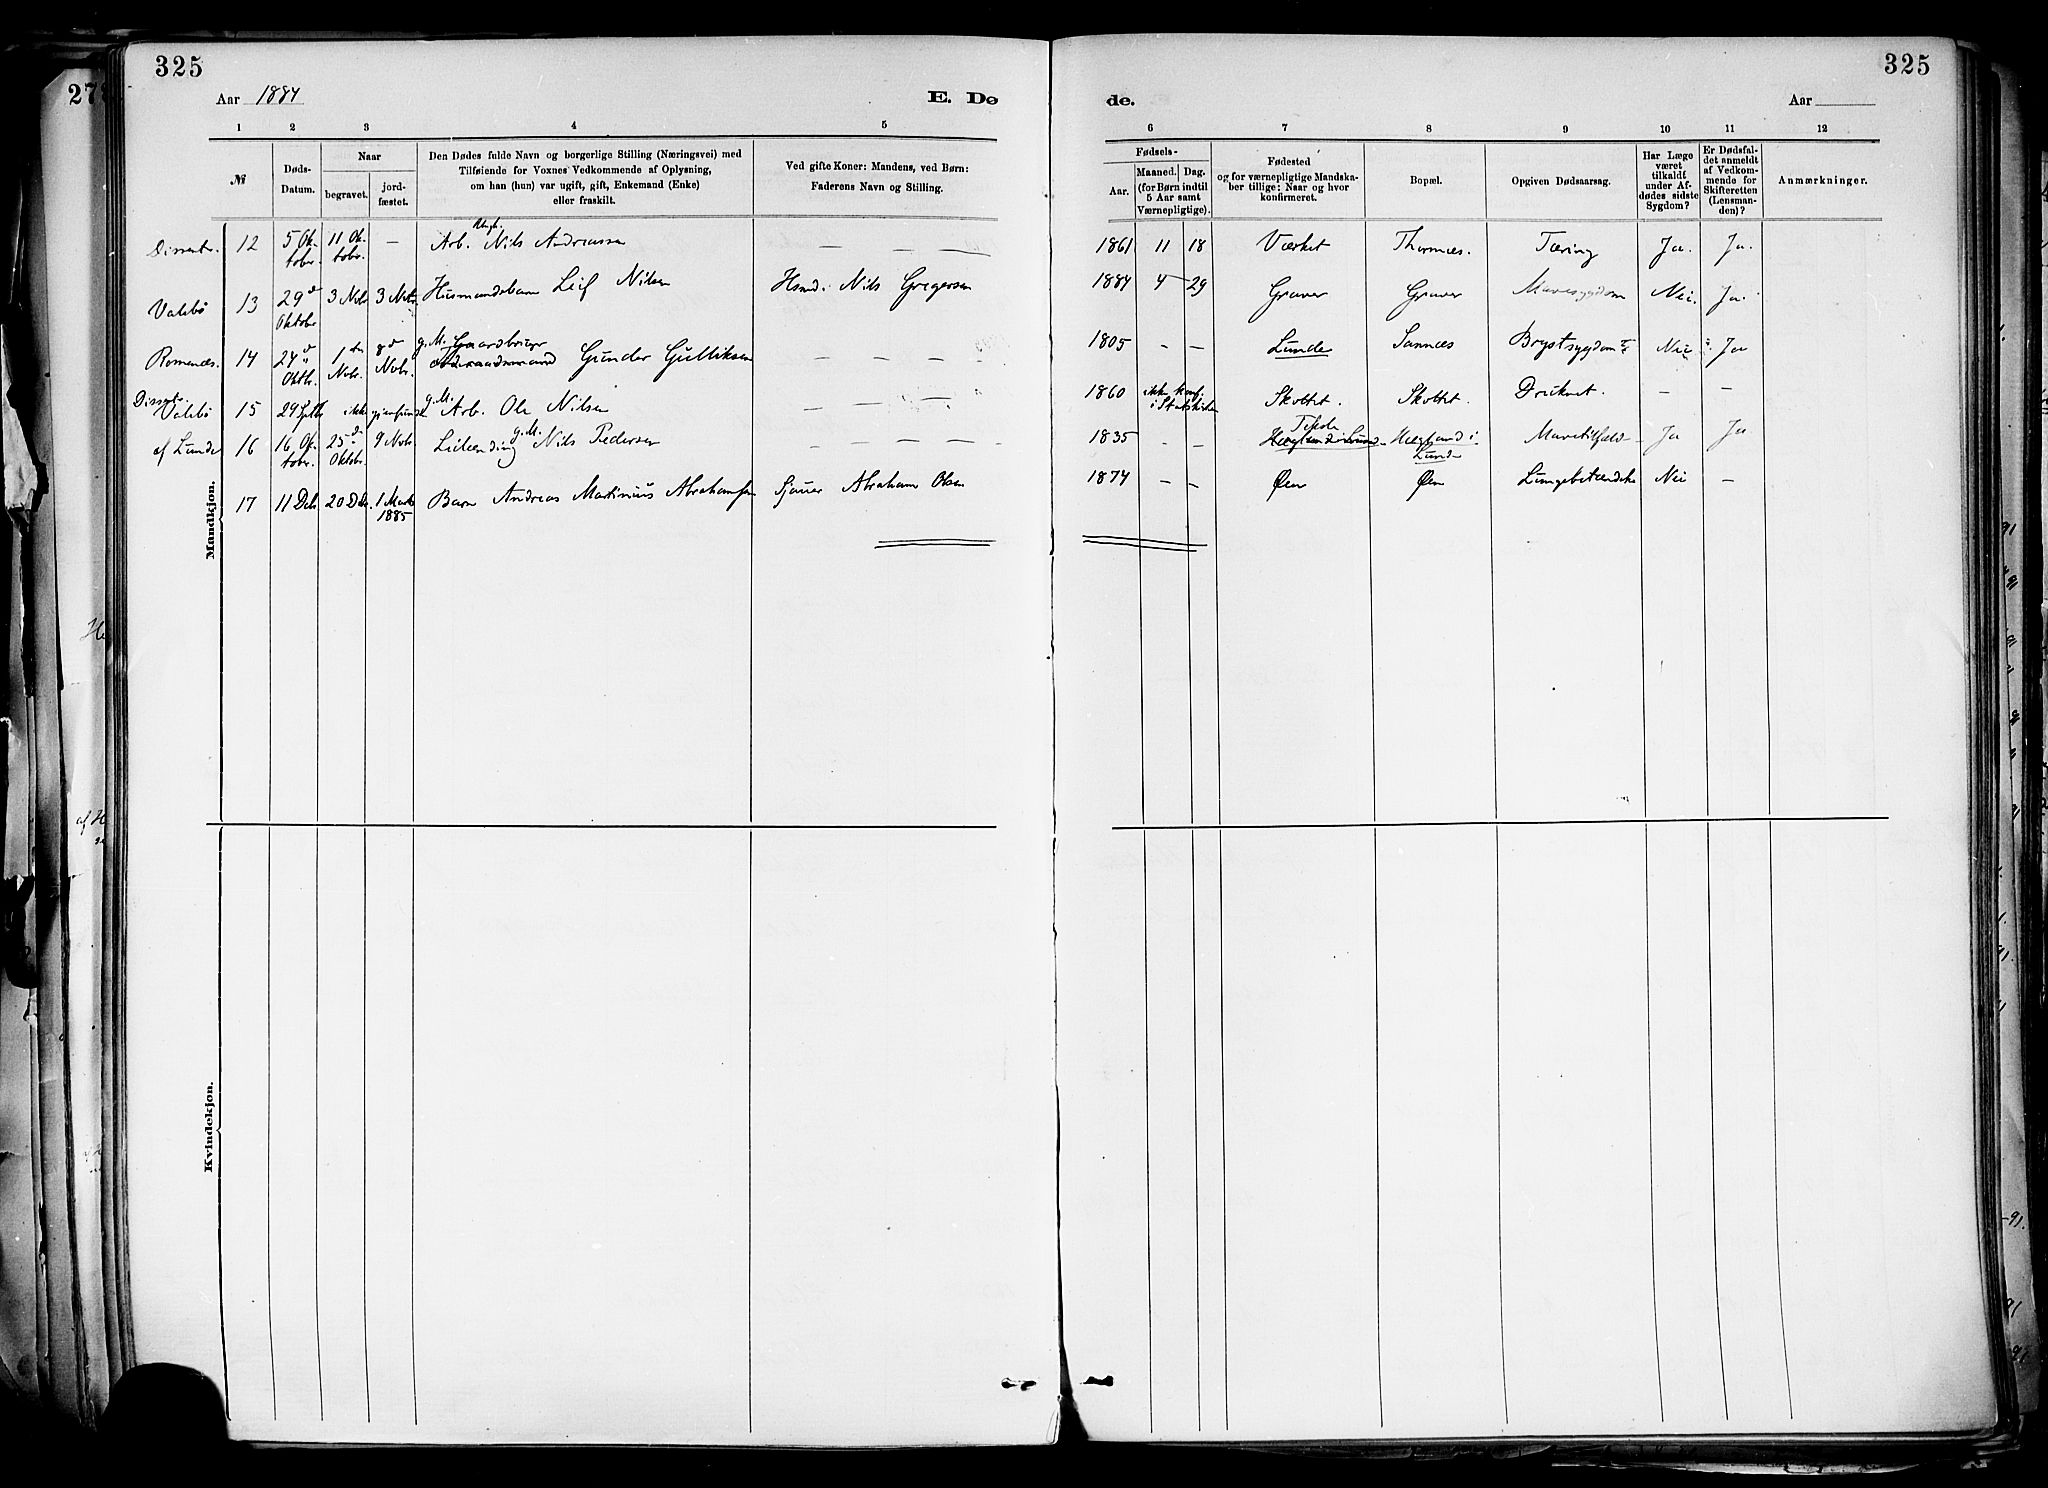 325
325
Aar 1884
E. Dø
de.
Aar
1 2 3 4 5 6 7 8 9 10 11 12
№
Døds-
Datum.
Naar
begravet.
jord-
fæstet.
Den Dødes fulde Navn og borgerlige Stilling (Næringsvei) med
Tilføiende for Voxnes Vedkommende af Oplysning,
om han (hun) var ugift, gift, Enkemand (Enke)
eller fraskilt.
Ved gifte Koner: Mandens, ved Børn:
Faderens Navn og Stilling.
Fødsels-
Aar.
Maaned. Dag.
(for Børn indtil
5 Aar samt
Værnepligtige).
Fødested
og for værnepligtige Mandska-
ber tillige: Naar og hvor
konfirmeret.
Bopæl.
Opgiven Dødsaarsag.
Har Læge
været
tilkaldt
under Af-
dødes sidste
Sygdom?
Er Dødsfal-
det anmeldt
af Vedkom-
mende for
Skifteretten
(Lensman-
den)?
Anmærkninger.
Dissentr. 12 5 Ok- tober. 11 Ok- tober. — Arb. Ungk. Nils Andreassen — — — — 1861 11 18 Værket Thornæs. Tæring Ja. Ja.
Valebø 13 29 Oktobr 3 Nob 3 Nob Husmandsbarn Leif Nilsen Hsmd. Nils Gregersen 1884 4 29 Graver Graver Mavesygdom Nei. Ja.
Romenæs. 14 24 Oktb. 1 Nobr. 8 Nobr. g. M. Gaardbruger Gunder Gulliksen — — — — 1805 — — Lunde Sannæs Brystsygdom Nei Ja
Dissentr.
Valebø 15 29 ikke g. M. Arb. Ole Nilsen — — — — 1860 ikke konf. i Statskirken Skottet. Skottet. Druknet. — —
af Lunde 16 16 Ok- tober. 25 Oktobr. 9 Nobr Leilending g. M. Nils Pedersen — — — — 1835 — — Hægland i Lunde Mavetilfælde Ja Ja
17 11 Dcb 20 Dcb. 1 Marts 1885 Barn Andreas Martinius Abrahamsen Sjauer Abraham Olsen 1874 — — Øen Øen Lungebetændelse Nei —
Mandkjøn.
Kvindekjøn.